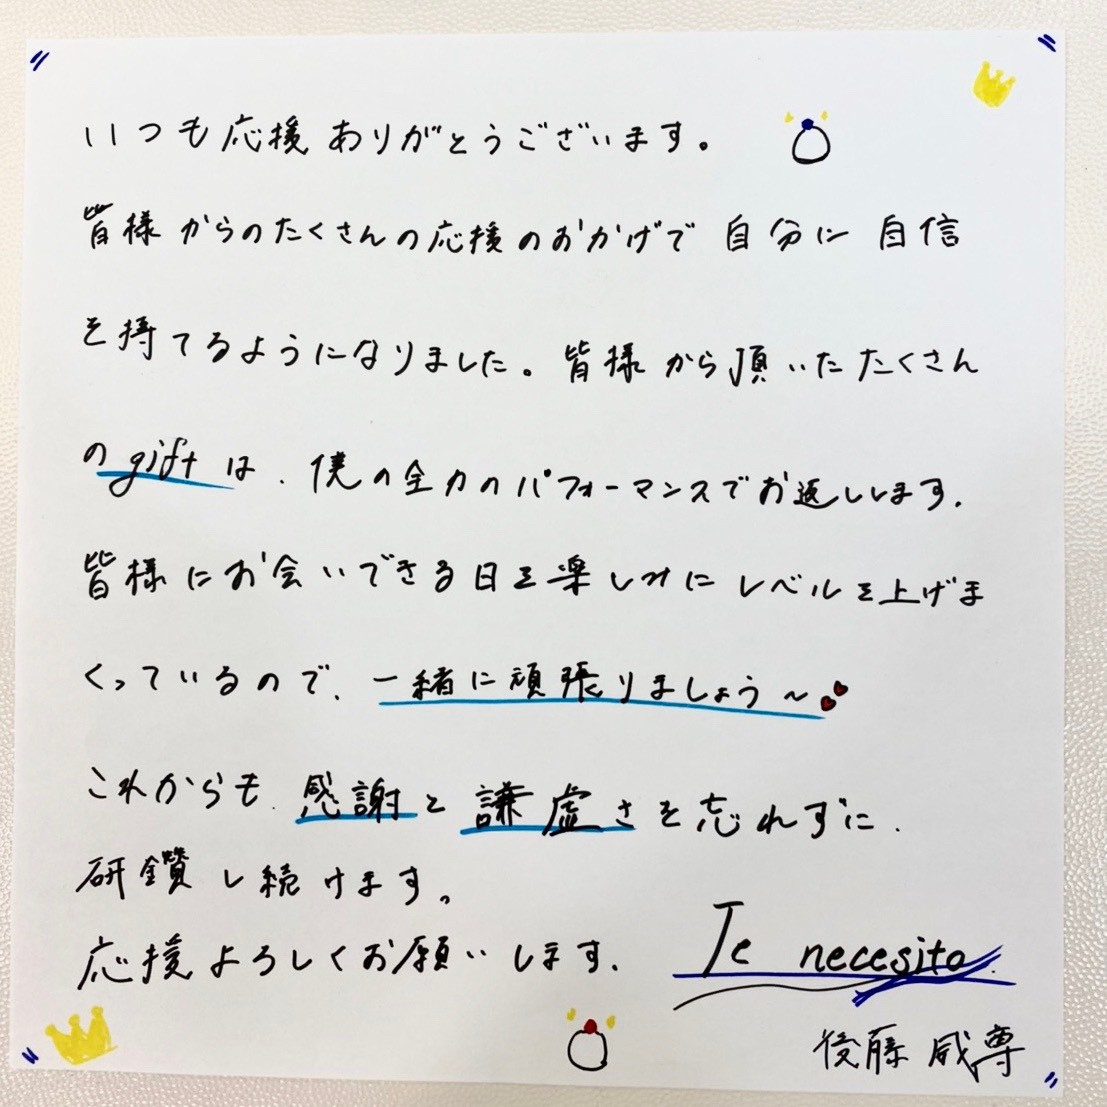 いつも応援ありがとうございます。
皆様からのたくさんの応援のおかげで自分に自信
を持てるようになりました。皆様から頂いたたくさん
のgiftは、僕の全力のパフォーマンスでお返しします。
皆様にお会いできる日を楽しみにレベルを上げま
くっているので、一緒に頑張りましょう〜
これからも、感謝と謙虚さを忘れずに、
研鑽し続けます。
応援よろしくお願いします。
Te necesito.
後藤威尊